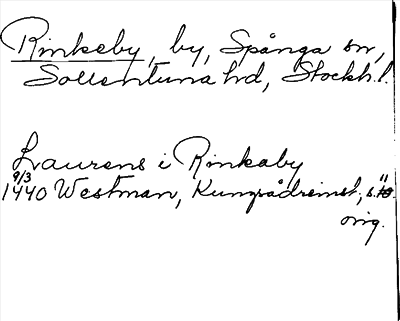 Rinkeby, by, Spånga sn,
Sollentuna hd, Stockh.l.
Laurens i Rinkaby
9/3
1440 Westman, Kungsådreinst., s. 11
orig.